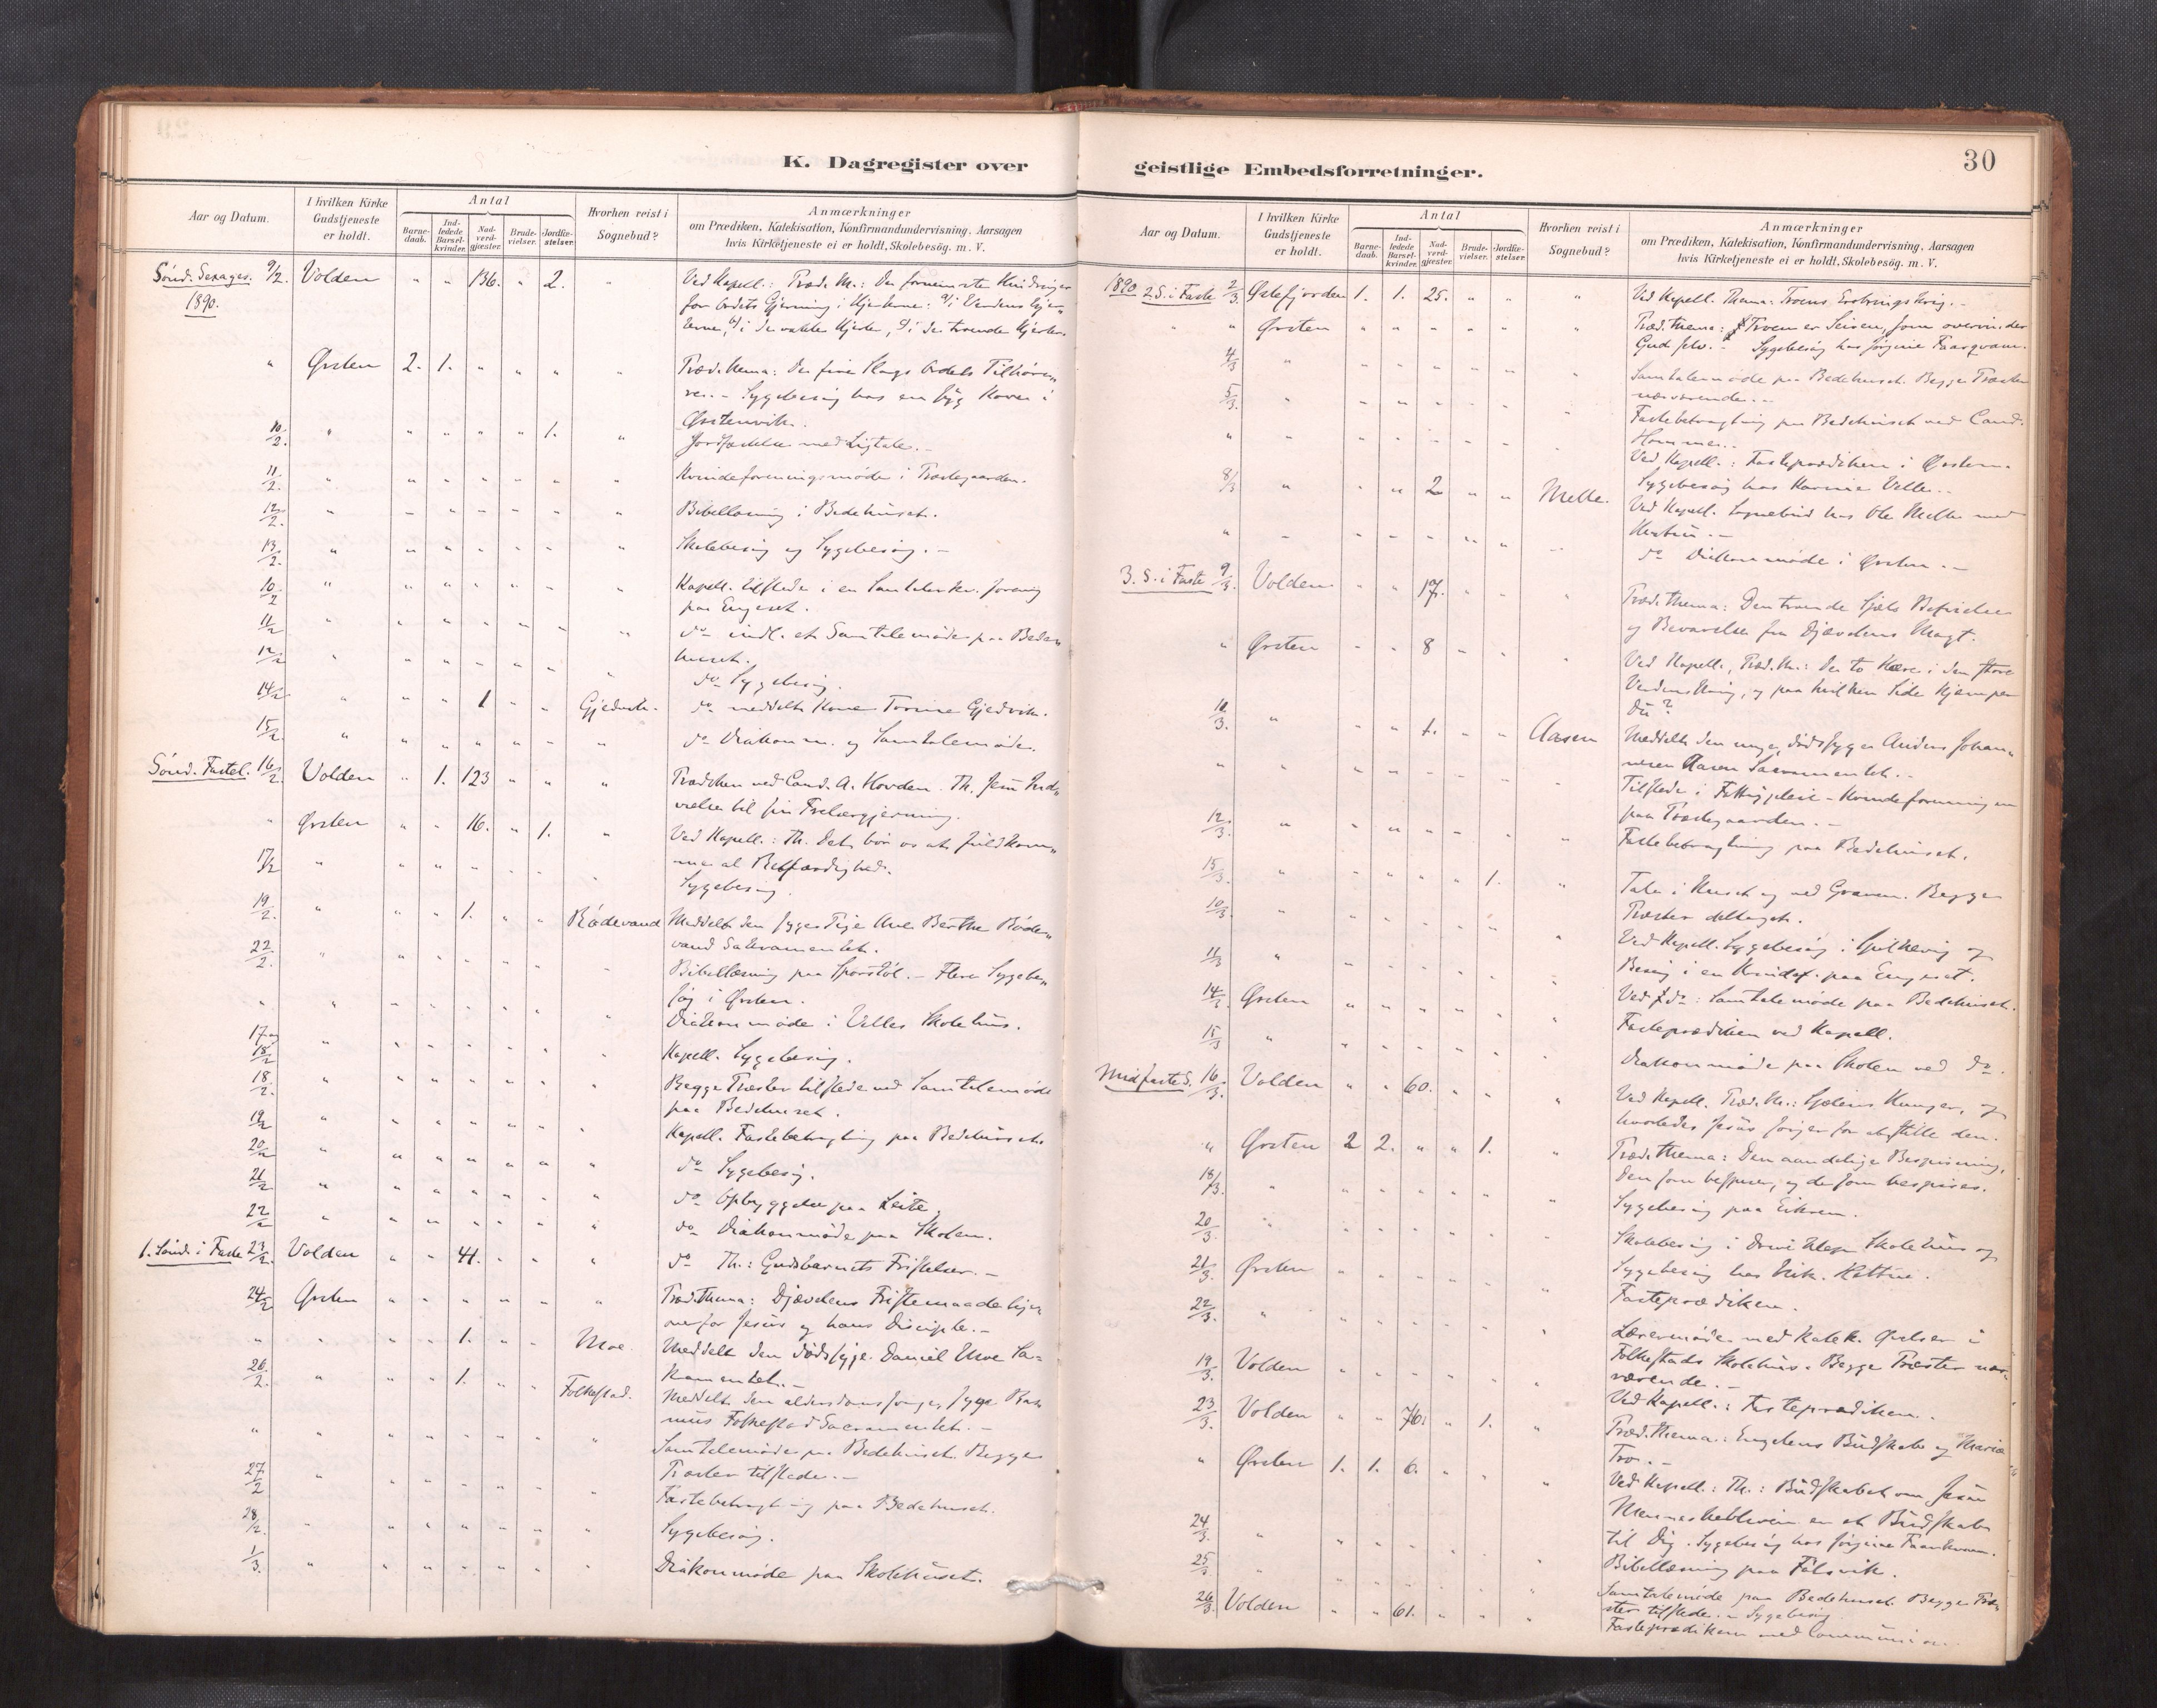 K. Dagregister over
Aar og Datum.
I hvilken Kirke Gudstjeneste er holdt.
Antal
Barne-daab.
Ind-ledede Barsel-kvinder.
Nad-verd-gjæster.
Brude-vielser.
Jordfæ-stelser.
Hvorhen reist i Sognebud?
Anmærkninger
om Prædiken, Katekisation, Konfirmandundervisning, Aarsagen
hvis Kirketjeneste ei er holdt, Skolebesög. m. V.
Sönd. Sexages. 9/2. Volden " " 136. " 2. " Ved Kapell.: Præd. Th.: De fornemste Hindringer
1890. for Ordets Gjerning i Hjerterne: a/ i Verdens Hjer„
terne, b/ i de vakte Hjerter, c/ i de troende Hjerter.
" Ørsten 2. 1. " " " " Præd. thema: De fire Slags Ordets Tilhöre„
re. – Sygebesög hos en syg Kone i
Ørstenvik.
10/2. " " " " " 1. " Jordfæstelse med Ligtale. –
11/2. " " " " " " " Kvindeforeningsmöde i Præstegaarden.
12/2. " " " " " " " Bibellæsning i Bedehuset.
13/2. " " " " " " " Skolebesög og Sygebesög. –
10/2 " " " " " " " Kapell. tilstede i en Forening
paa Engeset.
11/2 " " " " " " " do indl. et Samtalemöde paa Bede„
huset.
12/2 " " " " " " " do Sygebesög.
14/2 " " " 1 " " Gjedvik. do meddelt Kone Gjedvik.
15/2 " " " " " " " do Diakonm. og Samtalemöde.
Sönd. Fastel. 16/2. Volden " 1. 123 " " " Prædiken ved Cand. A. Hovden. Th. Jesu Ind„
vielse til sin Frelsergjerning.
" Ørsten " " 16. " 1. " Ved Kapell.: Th. Det bör os at fuldkom„
me al Retfærdighed.
17/2 " " " " " " " Sygebesög.
19/2. " " " 1. " " Rödevand Meddelt den syge Pige Ane Berthe Röde„
vand Sakramentet.
22/2. " " " " " " " Bibellæsning paa . – Flere Sygebe„
sög i Ørsten.
" " " " " " " " Diakonmöde i Velles Skolehus.
17 og 18/2 " " " " " " " Kapell. Sygebesög.
18/2. " " " " " " " Begge Præster tilstede ved Samtalemöde
paa Bedehuset.
19/2 " " " " " " " Kapell. Fastebetragtning paa Bedehuset.
20/2 " " " " " " " do Sygebesög.
21/2 " " " " " " " do Opbyggelse paa Leite.
22/2 " " " " " " " do Diakonmöde paa Skolen.
1. Sönd. i Faste 23/2. Volden " " 41. " " " do Th.: Gudsbarnets Fristelser. –
24/2 Ørsten " " " " " " Præd. thema: Djævelens Fristemaade lige
overfor Jesus og hans Disciple. –
" " " " 1. " " Moe. Meddelt den dödssyge Daniel Moe Sa=
kramentet. –
26/2. " " " 1. " " Folkestad. Meddelt den syge Ras
mus Folkestad Sacramentet. –
" " " " " " " " Samtalemöde paa Bedehuset. Begge
Præster tilstede. –
27/2 " " " " " " " Fastebetragtning paa Bedehuset.
28/2. " " " " " " " Sygebesög.
1/3. " " " " " " " Diakonmöde paa Skolehuset.
geistlige Embedsforretninger.
30
Aar og Datum.
I hvilken Kirke Gudstjeneste er holdt.
Antal
Barne-daab.
Ind-ledede Barsel-kvinder.
Nad-verd-gjæster.
Brude-vielser.
Jordfæ-stelser.
Hvorhen reist i Sognebud?
Anmærkninger
om Prædiken, Katekisation, Konfirmandundervisning, Aarsagen
hvis Kirketjeneste ei er holdt, Skolebesög. m. V.
1890 2. S. i Faste 2/3. Østefjorden 1. 1. 25. " " " Ved Kapell. Thema: Troens Erobringskrig. –
" " Ørsten " " " " " " Præd. thema: Troen er Seiren, som overvinder
Gud selv. – Sygebesög hos Jörgine
4/3 " " " " " " " Samtalemöde paa Bedehuset. Begge Præster
nærværende. –
5/3. " " " " " " " Fastebetragtning paa Bedehuset ved Cand.
" " " " " " " " Ved Kapell.: Fasteprædiken i Ørsten.
Sygebesög hos Karine Velle. –
8/3 " " " 2 " " Melle. Ved Kapell. Sognebud hos Ole Melle med
Hustru. –
" " " " " " " " do Diakonmöde i Ørsten. –
3. S. i Faste 9/3. Volden " " 17. " " " Præd. thema: Den troende Sjæls Befrielse
og Bevarelse fra Djævelens Magt.
" Ørsten " " 8 " " " Ved Kapell., Præd. th.: De to Hære i den store
Verdenskrig, og paa hvilken Side kjæmper
Du?
10/3. " " " 1. " " Aasen Meddelt den unge, dödssyge Anders Johan„
nesen Aasen Sacramentet. –
" " " " " " " " Tilstede i Fattigpleie-Kvindeforeningen
paa Præstegaarden. –
12/3. " " " " " " " Fastebetragtning paa Bedehuset.
15/3. " " " " " 1. " Tale i Huset og ved Graven. Begge
Præster deltaget.
10/3. " " " " " " " Ved Kapell. Sygebesög i og
Besög i en Kvindef. paa Engeset.
11/3 " " " " " " " Ved do: Samtalemöde paa Bedehuset.
14/3. Ørsten " " " " " " Fasteprædiken ved Kapell.
15/3 " " " " " " " Diakonmöde paa Skolen ved do.
Midfaste S. 16/3. Volden " " 60. " " " Ved Kapell. Præd. th.: Sjælens Hunger, og
hvorledes Jesus sörger for at stille den.
" Ørsten 2 2. " " 1. " Præd. thema: Den aandelige Bespisning,
den som bespiser, og de som bespises.
18/3. " " " " " " " Sygebesög paa Eiksem.
20/3. " " " " " " " Skolebesög i Skolehus og
Sygebesög hos
21/3. Ørsten " " " " " " Fasteprædiken.
22/3. " " " " " " " Lærermöde med Katek. Övelser i
Folkestads Skolehus. Begge Præster nær„
værende. –
19/3. Volden " " " " " " Ved Kapell.: Fasteprædiken.
23/3. Volden " " 76. " 1. " Præd. thema: Engelens Budskab og Mariæ
Tro. –
" Ørsten 1. 1. 6. " " " Ved Kapell.: Th.: Budskabet om Jesu
Menneskebliven er et Budskab
til Dig. Sygebesög hos Jörgine
24/3. " " " " " " " Bibellæsning paa
25/3 " " " " " " " Samtalemöde paa Bedehuset. Begge Præ„
ster tilstede. – Sygebesög
26/3. Volden " " 61. " " " Fasteprædiken med Communion.